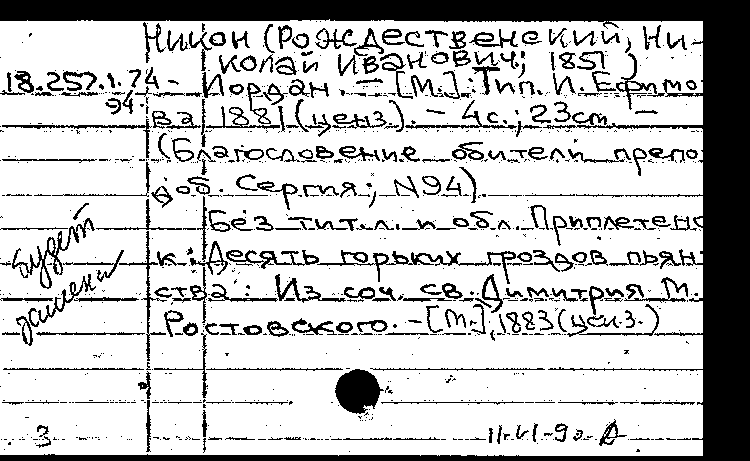 Никон (Рождественский, Ни-
колай Иванович; 1851 )
18.257.1.74- Иордан. – [М.]: Тип. И. Ефимо
94.
ва, 1881 (ценз). – 4с.; 23см. –
(Благословение обители препо
доб. Сергия; N94).
Без тит.л. и обл. Приплетено
к: Десять горьких гроздов пьян
ства: Из соч. св. Димитрия М.
Ростовского. – [М.], 1883 (ценз.)
будет
3